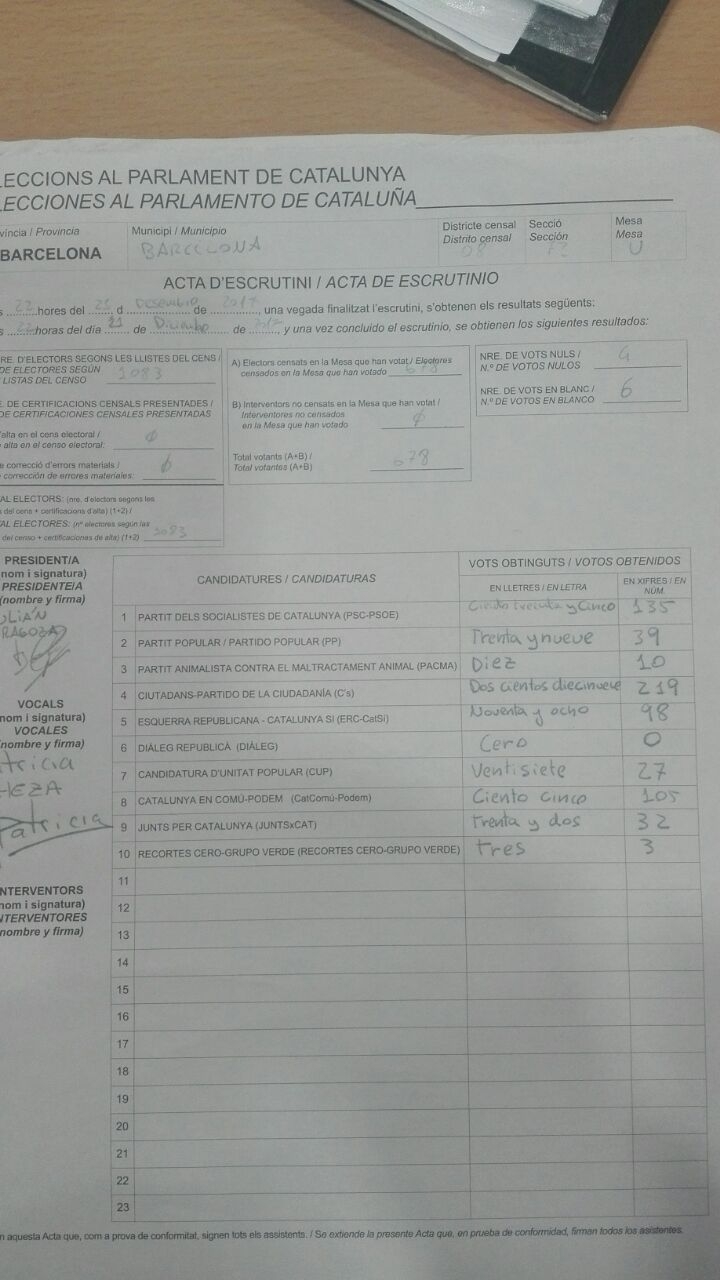 LECCIONS AL PARLAMENT DE CATALUNYA
LECCIONES AL PARLAMENTO DE CATALUÑA
víncia / Provincia
BARCELONA
Municipi / Municipio
BARCELONA
Districte censal
Distrito censal
08
Secció
Sección
Mesa
Mesa
U
ACTA D'ESCRUTINI / ACTA DE ESCRUTINIO
s 22 hores del 21 d Desembre de 2017, una vegada finalitzat l'escrutini, s'obtenen els resultats següents:
s 22 horas del día 21 de Diciembre de 2017 y una vez concluido el escrutinio, se obtienen los siguientes resultados:
RE. D'ELECTORS SEGONS LES LLISTES DEL CENS /
DE ELECTORES SEGÚN
LISTAS DEL CENSO 1083
. DE CERTIFICACIONS CENSALS PRESENTADES /
DE CERTIFICACIONES CENSALES PRESENTADAS
'alta en el cens electoral /
alta en el censo electoral: Ø
e correcció d'errors materials /
corrección de errores materiales: Ø
AL ELECTORS: (nre. d'electors segons les
s del cens + certificacions d'alta) (1+2) /
AL ELECTORES: (nº electores según las
del censo + certificacionas de alta) (1+2) 1083
A) Electors censats en la Mesa que han votat / Electores
censados en la Mesa que han votado 678
B) Interventors no censats en la Mesa que han votat /
Interventores no censados
en la Mesa que han votado Ø
Total votants (A+B) /
Total votantes (A+B) 678
NRE. DE VOTS NULS /
N.º DE VOTOS NULOS 4
NRE. DE VOTS EN BLANC /
N.º DE VOTOS EN BLANCO 6
PRESIDENT/A
(nom i signatura)
PRESIDENTE/A
(nombre y firma)
ULIÁN
RAGOZA
VOCALS
nom i signatura)
VOCALES
(nombre y firma)
tricia
HEZA
Patricia
NTERVENTORS
nom i signatura)
NTERVENTORES
nombre y firma)
CANDIDATURES / CANDIDATURAS
VOTS OBTINGUTS / VOTOS OBTENIDOS
EN LLETRES / EN LETRA
EN XIFRES / EN NÚM.
1 PARTIT DELS SOCIALISTES DE CATALUNYA (PSC-PSOE) Ciento treinta y cinco 135
2 PARTIT POPULAR / PARTIDO POPULAR (PP) Trenta y nueve 39
3 PARTIT ANIMALISTA CONTRA EL MALTRACTAMENT ANIMAL (PACMA) Diez 10
4 CIUTADANS-PARTIDO DE LA CIUDADANÍA (C's) Dos cientos diecinueve 219
5 ESQUERRA REPUBLICANA - CATALUNYA SI (ERC-CatSí) Noventa y ocho 98
6 DIÀLEG REPUBLICÀ (DIÀLEG) Cero 0
7 CANDIDATURA D'UNITAT POPULAR (CUP) Ventisiete 27
8 CATALUNYA EN COMÚ-PODEM (CatComú-Podem) Ciento cinco 105
9 JUNTS PER CATALUNYA (JUNTSxCAT) trenta y dos 32
10 RECORTES CERO-GRUPO VERDE (RECORTES CERO-GRUPO VERDE) tres 3
11
12
13
14
15
16
17
18
19
20
21
22
23
n aquesta Acta que, com a prova de conformitat, signen tots els assistents. / Se extiende la presente Acta que, en prueba de conformidad, firman todos los asistentes.